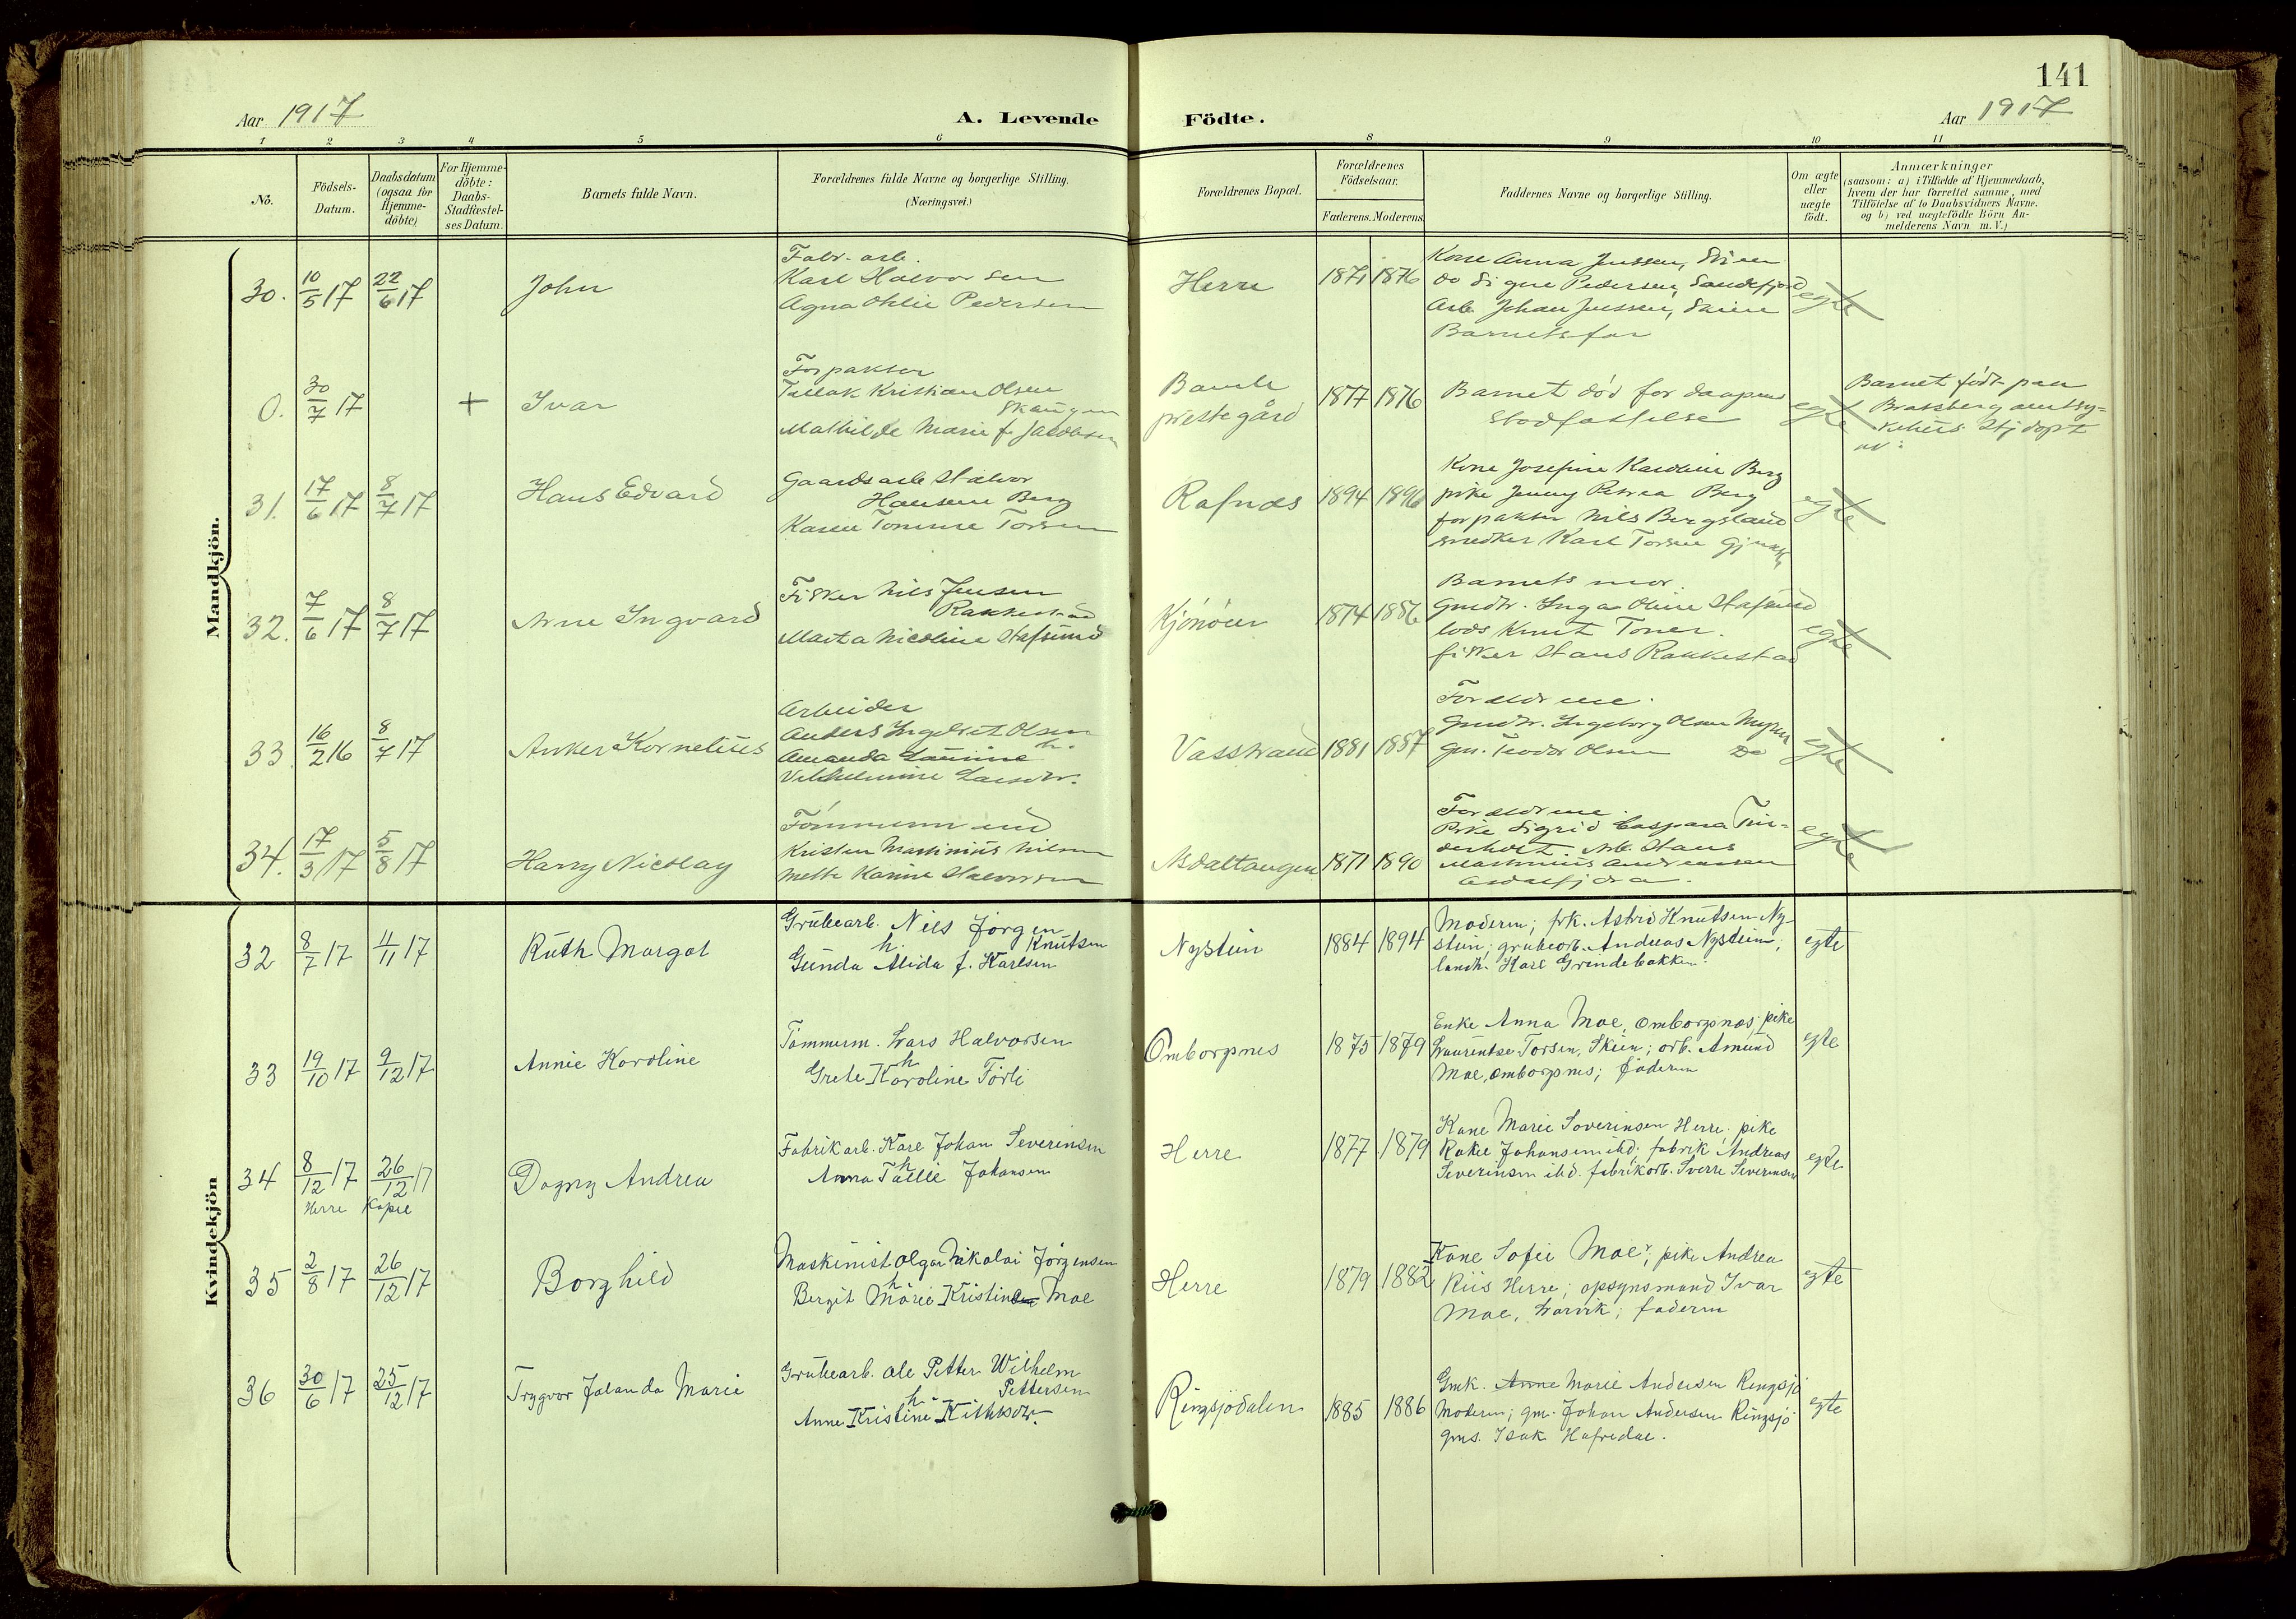 141
Aar 1917
A. Levende Födte.
Aar 1917
1 2 3 4 5 6 8 9 10 11
No.
Födsels-
Datum.
Daabsdatum
(ogsaa for
Hjemme-
döbte)
For Hjemme-
döbte:
Daabs-
Stadfæstel-
ses Datum.
Barnets fulde Navn.
Forældrenes fulde Navne og borgerlige Stilling.
(Næringsvei.)
Forældrenes Bopæl.
Forældrenes
Födselsaar.
Faderens. Moderens.
Faddernes Navne og borgerlige Stilling.
Om ægte
eller
uægte
födt.
Anmærkninger
(saasom: a) i Tilfælde af Hjemmedaab,
hvem der har forrettet samme, med
Tilföielse af to Daabsvidners Navne.
og b) ved uægtefödte Börn An-
melderens Navn m. V.)
Mandkjön.
30. 10/5 17 22/6 17
John
Fabr. arb.
Karl Halvorsen
Agna Othlie Pedersen
Herre
1871 1876
Kone Anna Jenssen, Skien
do Signe Pedersen, Sandefjord
Arb. Johan Jenssen, Skien
Barnets far
egte
0. 30/7 17 +
Ivar
Forpakter
Tallak Kristian Olsen
Skaugen
Mathilde Marie f. Jacobsen
Bamle
prestegård
1877 1876
Barnet död for daapens
stadfestelse
egte
Barnet födt paa
Bratsberg amtssy-
kehus Hj döpt
av:
31. 17/6 17 8/7 17
Hans Edvard
Gaardsarb Halvor
Hansen Berg
Karen Tomine Torsen
Rafnæs
1894 1896
Kone Josefine Karoline Berg
pike Jenny Petrea Berg
forpakter Nils Bergsland
snedker Karl Torsen
egte
32. 7/6 17 8/7 17
Arne Ingvard
Fisker Nils Jensen
Rakkestad
Marta Nicoline Hafsund
Kjönöen
1874 1886
Barnets mor.
Gmdtr. Inga Oline Hafsund
lods Knut Toner.
fisker Hans Rakkestad
egte
33. 16/2 16 8/7 17
Anker Kornelius
Arbeider
Anders Ingebret Olsen
h.
Amanda Laurine
Vilhelmine Larsdtr.
Vasstrand
1881 1887
Foreldrene.
Gmdtr. Ingeborg Olsen Myren
Gm. Teodor Olsen Do
egte
34. 17/3 17 5/8 17
Harry Nicolay
Tömmermand
Kristen Martinius Nilsen
Mette Karine Halvorsen
Asdaltangen
1871 1890
Foreldrene.
Pike Sigrid Caspara Tin-
derholt. Arb. Hans
Martinius Andreassen
egte
Kvindekjön
32 8/7 17 4/11 17
Ruth Margot
Grubearb. Nils Jörgen
h. Knutsen
Gunda Alida f. Karlsen
Nystein
1884 1894
Moderen; frk. Astrid Knutsen Ny-
stein; grubearb. Andreas Nystein;
landh. Karl Grindebakken.
egte
33 19/10 17 9/12 17
Annie Karoline
Tömmerm. Lars Halvorsen
h
Grete Karoline Förli
Omborgsnes
1875 1879
Enke Anna Moe, Omborgsnæs; pike
Laurentze Torsen, Skien; arb. Amund
Moe, Omborgsnes; faderen
egte
34 8/12 17 26/12 17
Herre Kapel
Dagny Andrea
Fabrikarb. Karl Johan Severinsen
h
Anna Tallie Johansen
Herre
1877 1879
Kone Marie Severinsen Herre; pike
Rakel Johansen ibd; fabrik Andreas
Severinsen ibd. fabrikarb. Sverre Severinsen
egte
35 2/8 17 26/12 17
Borghild
Maskinist Olgar Nikolai Jörgensen
h
Bergit Marie Kristine Moe
Herre
1879 1882
Kone Sofie Moe; pike Andrea
Riis Herre; opsynsmand Ivar
Moe, Larvik; faderen
egte
36 30/6 17 25/12 17
Trygvor Jolanda Marie
Grubearb. Ole Petter Wilhelm
h. Pettersen
Anne Kristine
Ringsjödalen
1885 1886
Gmk. Anne Marie Andersen Ringsjö
Moderen; gm. Johan Andersen Ringsjö
gms. Isak Hafredal.
egte